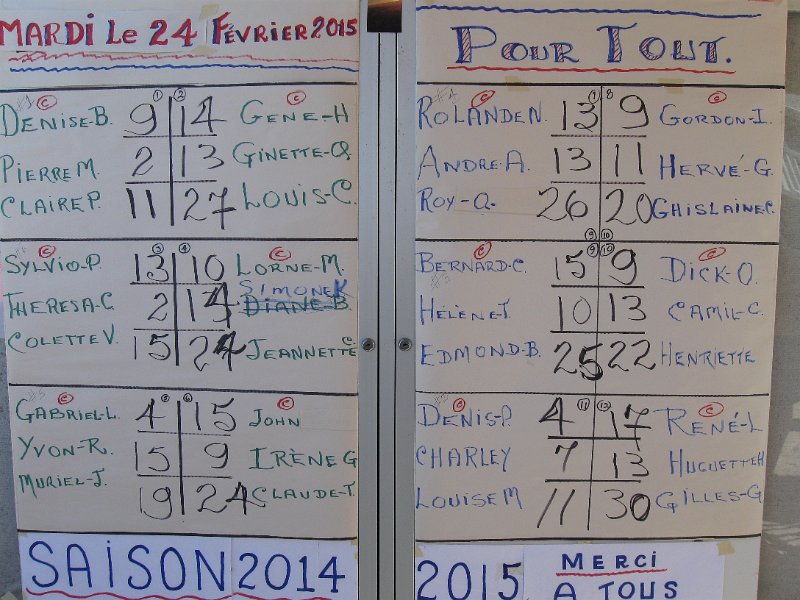 MARDI LE 24 FÉVRIER 2015
DENISE-B. © 9 ① ② 14 GENE-H ©
PIERRE M. 2 13 GINETTE-Q.
CLAIRE P. 11 27 LOUIS-C.
SYLVIO-P. © 13 ③ ④ 10 LORNE-M. ©
THERESA-C. 2 14 SIMONE K
DIANE-B
COLETTE V. 15 24 JEANNETTE C.
GABRIEL-L. © 4 ⑤ ⑥ 15 JOHN ©
YVON-R. 15 9 IRÈNE G
MURIEL-J. 19 24 CLAUDE-T.
SAISON 2014
POUR TOUT.
ROLANDE N. © 13 ⑦ 8 9 GORDON-I. ©
ANDRE-A. 13 11 HERVÉ-G.
ROY-Q. 26 20 GHISLAINE C.
⑨ ⑩
BERNARD-C. © 15 ⑨ ⑩ 9 DICK-O. ©
HÉLÈNE-T. 10 13 CAMIL-C.
EDMOND-B. 25 22 HENRIETTE
DENIS-P. © 4 ⑪ ⑫ 17 RENÉ-L ©
CHARLEY 7 13 HUGUETTE H
LOUISE M 11 30 GILLES-G.
2015 MERCI
A TOUS